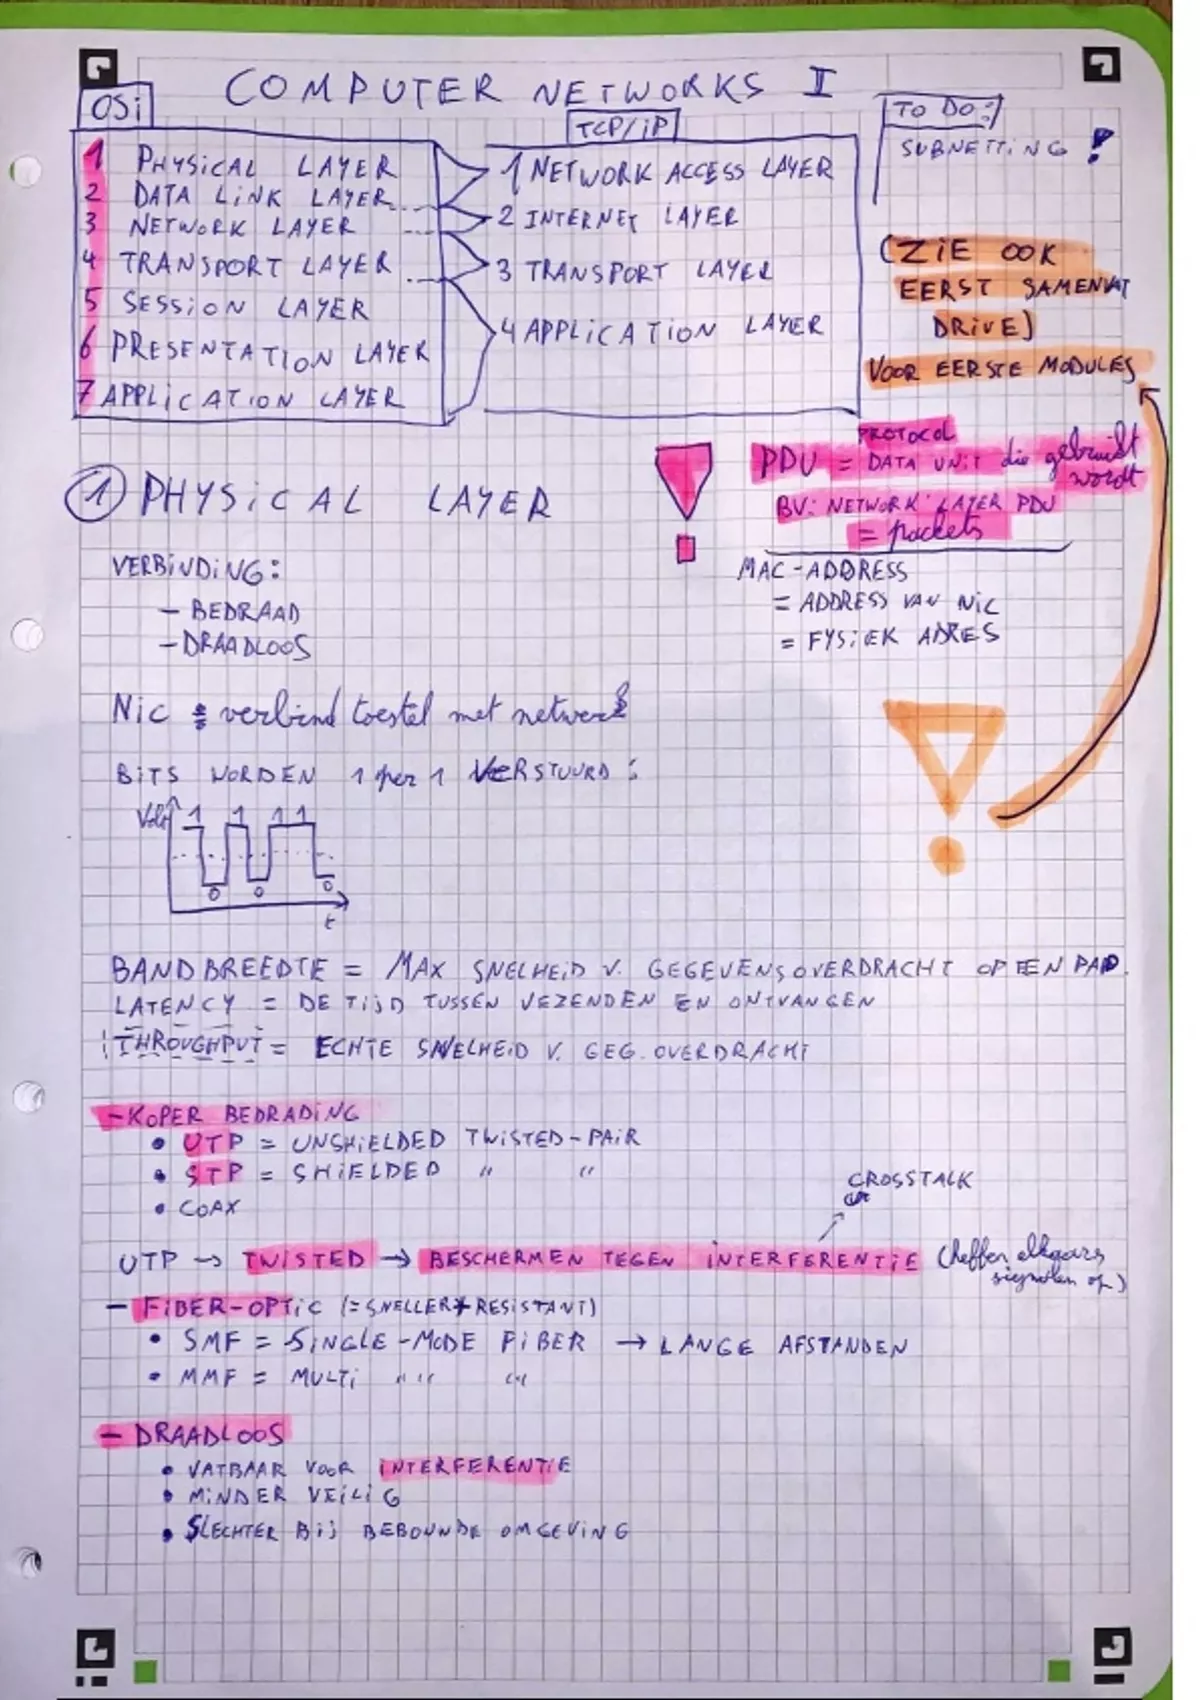 COMPUTER NETWORKS I
OSi
TCP/iP
1 PHYSiCAL LAYER
2 DATA LiNK LAYER
3 NETWORK LAYER
4 TRANSPORT LAYER
5 SESSiON LAYER
6 PRESENTATION LAYER
7 APPLiCATION LAYER
1 NETWORK ACCESS LAYER
2 INTERNET LAYER
3 TRANSPORT LAYER
4 APPLiCATiON LAYER
TO DO:
SUBNETTiNG !
(ZiE OOK
EERST SAMENVAT
DRiVE)
VOOR EERSTE MODULES
PROTOCOL
PDU = DATA UNiT die gebruikt
wordt
BV: NETWORK LAYER PDU
= packets
MAC-ADDRESS
= ADDRESS VAN NiC
= FYSiEK ADRES
1 PHYSiCAL LAYER
VERBiNDiNG:
- BEDRAAD
- DRAADLOOS
NiC = verbind toestel met netwerk
BiTS WORDEN 1 per 1 VERSTUURD :
Volt 1 1 1 1
0 0 0
t
BANDBREEDTE = MAX SNELHEiD V. GEGEVENSOVERDRACHT OP EEN PAD.
LATENCY = DE TiJD TUSSEN VEZENDEN EN ONTVANGEN
THROUGHPUT = ECHTE SNELHEiD V. GEG. OVERDRACHT
- KOPER BEDRADiNG
• UTP = UNSHiELDED TWiSTED-PAiR
• STP = SHiELDED " "
• COAX
CROSSTALK
UTP → TWiSTED → BESCHERMEN TEGEN iNTERFERENTiE (heffen elkaars
signalen op)
- FiBER-OPTiC (= SNELLER + RESiSTANT)
• SMF = SiNGLE-MODE FiBER → LANGE AFSTANDEN
• MMF = MULTi " " "
- DRAADLOOS
• VATBAAR VOOR iNTERFERENTiE
• MiNDER VEiLiG
• SLECHTER BiJ BEBOUWDE OMGEViNG